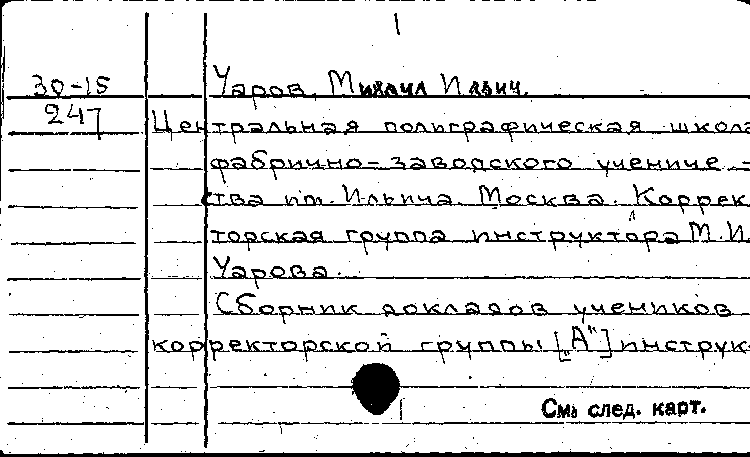 30-15 Уаров, Михаил Ильич.
247 Центральная полиграфическая школа
фабрично-заводского учениче-
ства им. Ильича. Москва. Коррек-
торская группа инструктора М.И.
Уарова.
Сборник докладов учеников
корректорской группы ["А"] инструк-
См. след. карт.